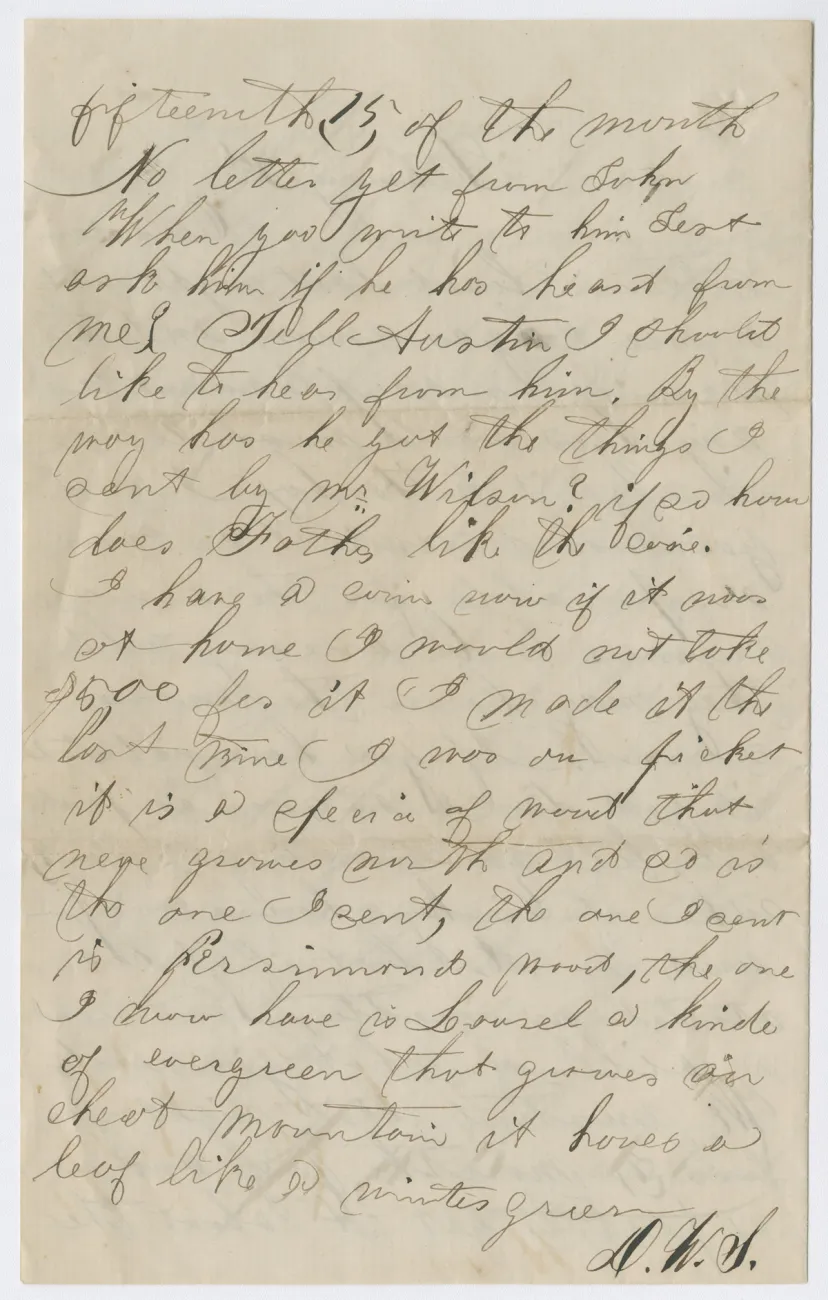 fifteenth (15) of the month
No letter yet from John
When you write to him Just
ask him if he has heard from
me? Tell Austin I should
like to hear from him. By the
way has he got the things I
sent by Mr. Wilson? if so how
does Father like the cane.
I have a cane now if it was
at home I would not take
$500 for it I made it the
last time I was on picket
it is a specia of wood that
neve growes north and so is
the one I sent, the one I sent
is Persimmond wood, the one
I now have is Lausel a kinde
of evergreen that growes on
cheat mountain it haves a
leaf like a wintergreen
D. W. S.